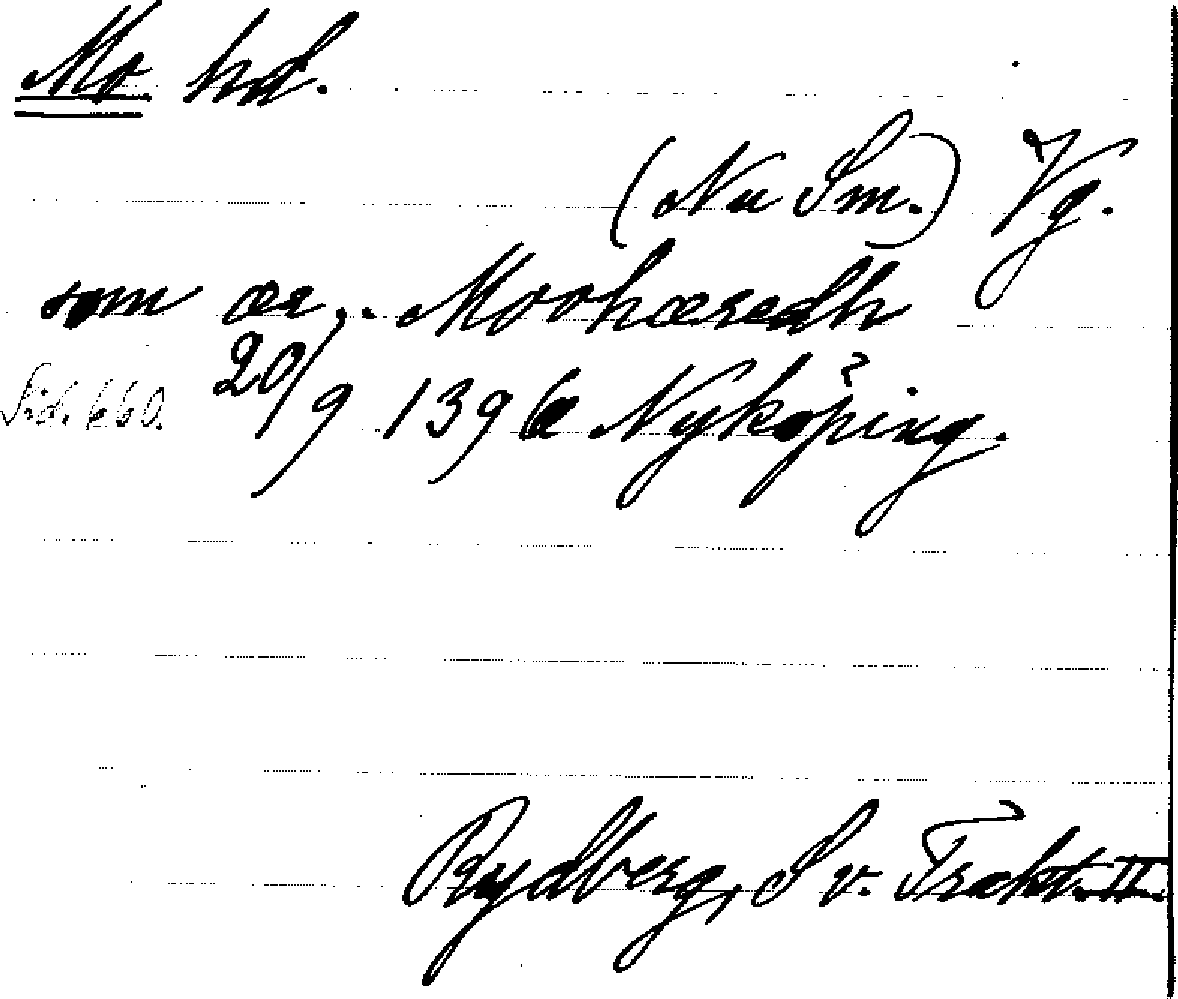 Mo hd.
(Nu Sm.) Vg.
som ær .. Moohæredh
Sid. 660. 20/9 1396 Nyköping.
Rydberg, S v. Trakt. II.